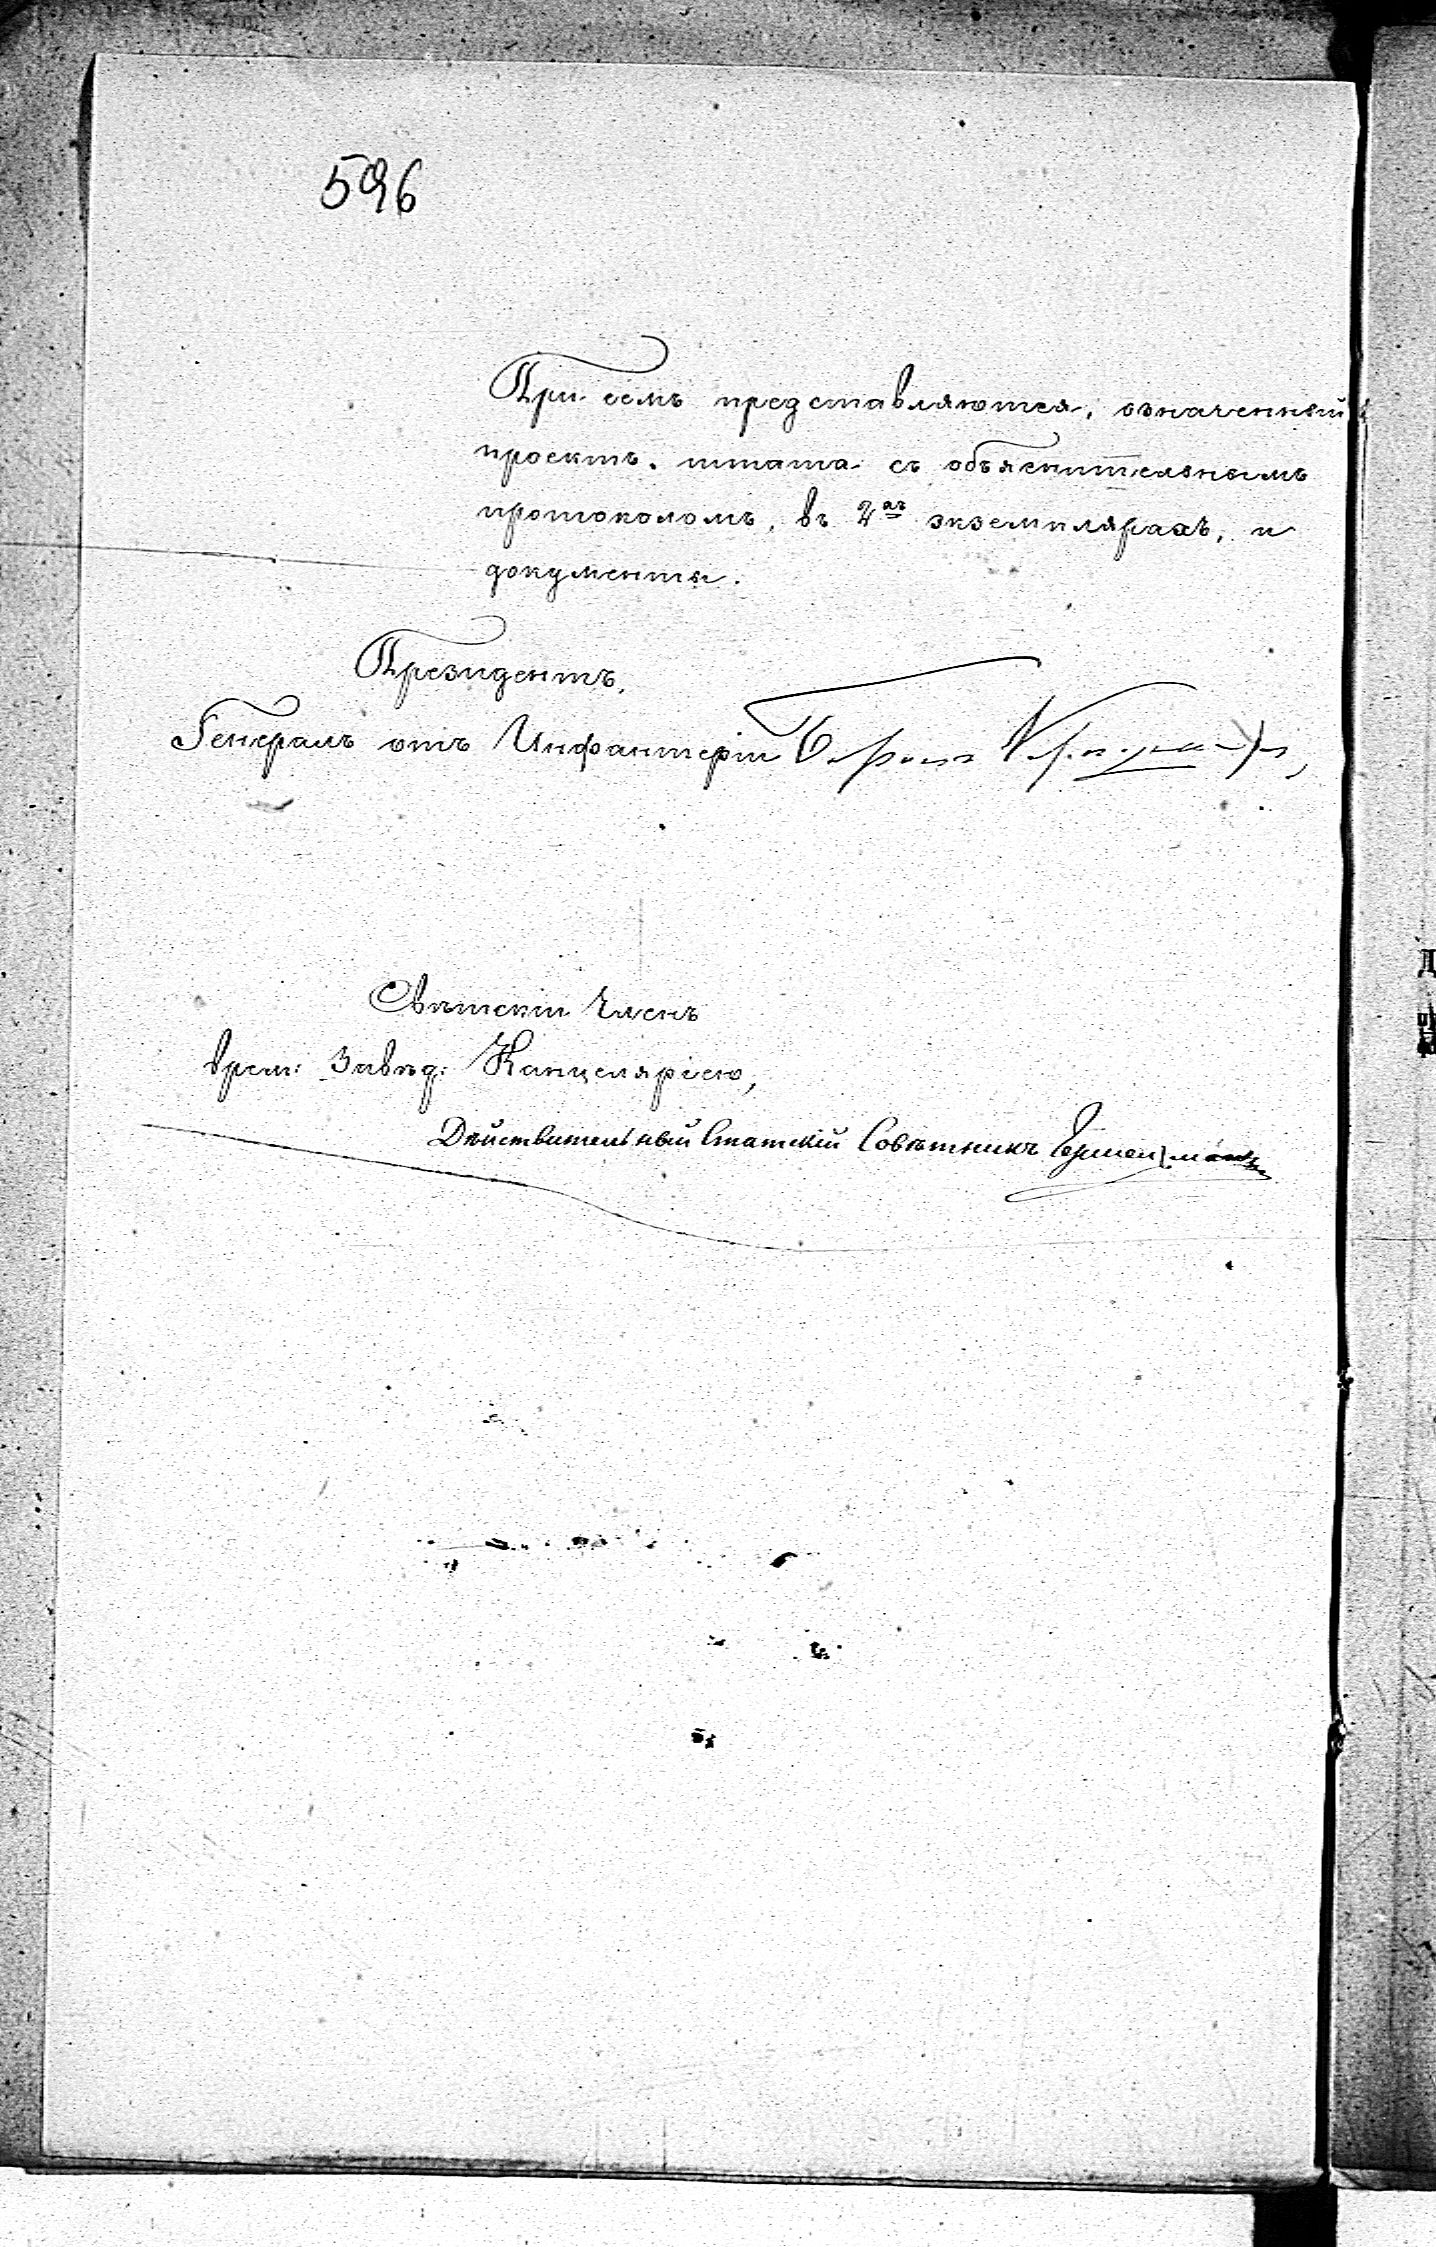 596
При семъ представляются, означенный
проектъ штата съ объяснительнымъ
протоколомъ, въ 2хъ экземплярахъ, и
документы.
Президентъ,
Генералъ отъ Инфантеріи Баронъ
Свѣтскій Членъ
врем: Завѣд: Канцеляріею,
Дѣйствительный Статскій Совѣтникъ